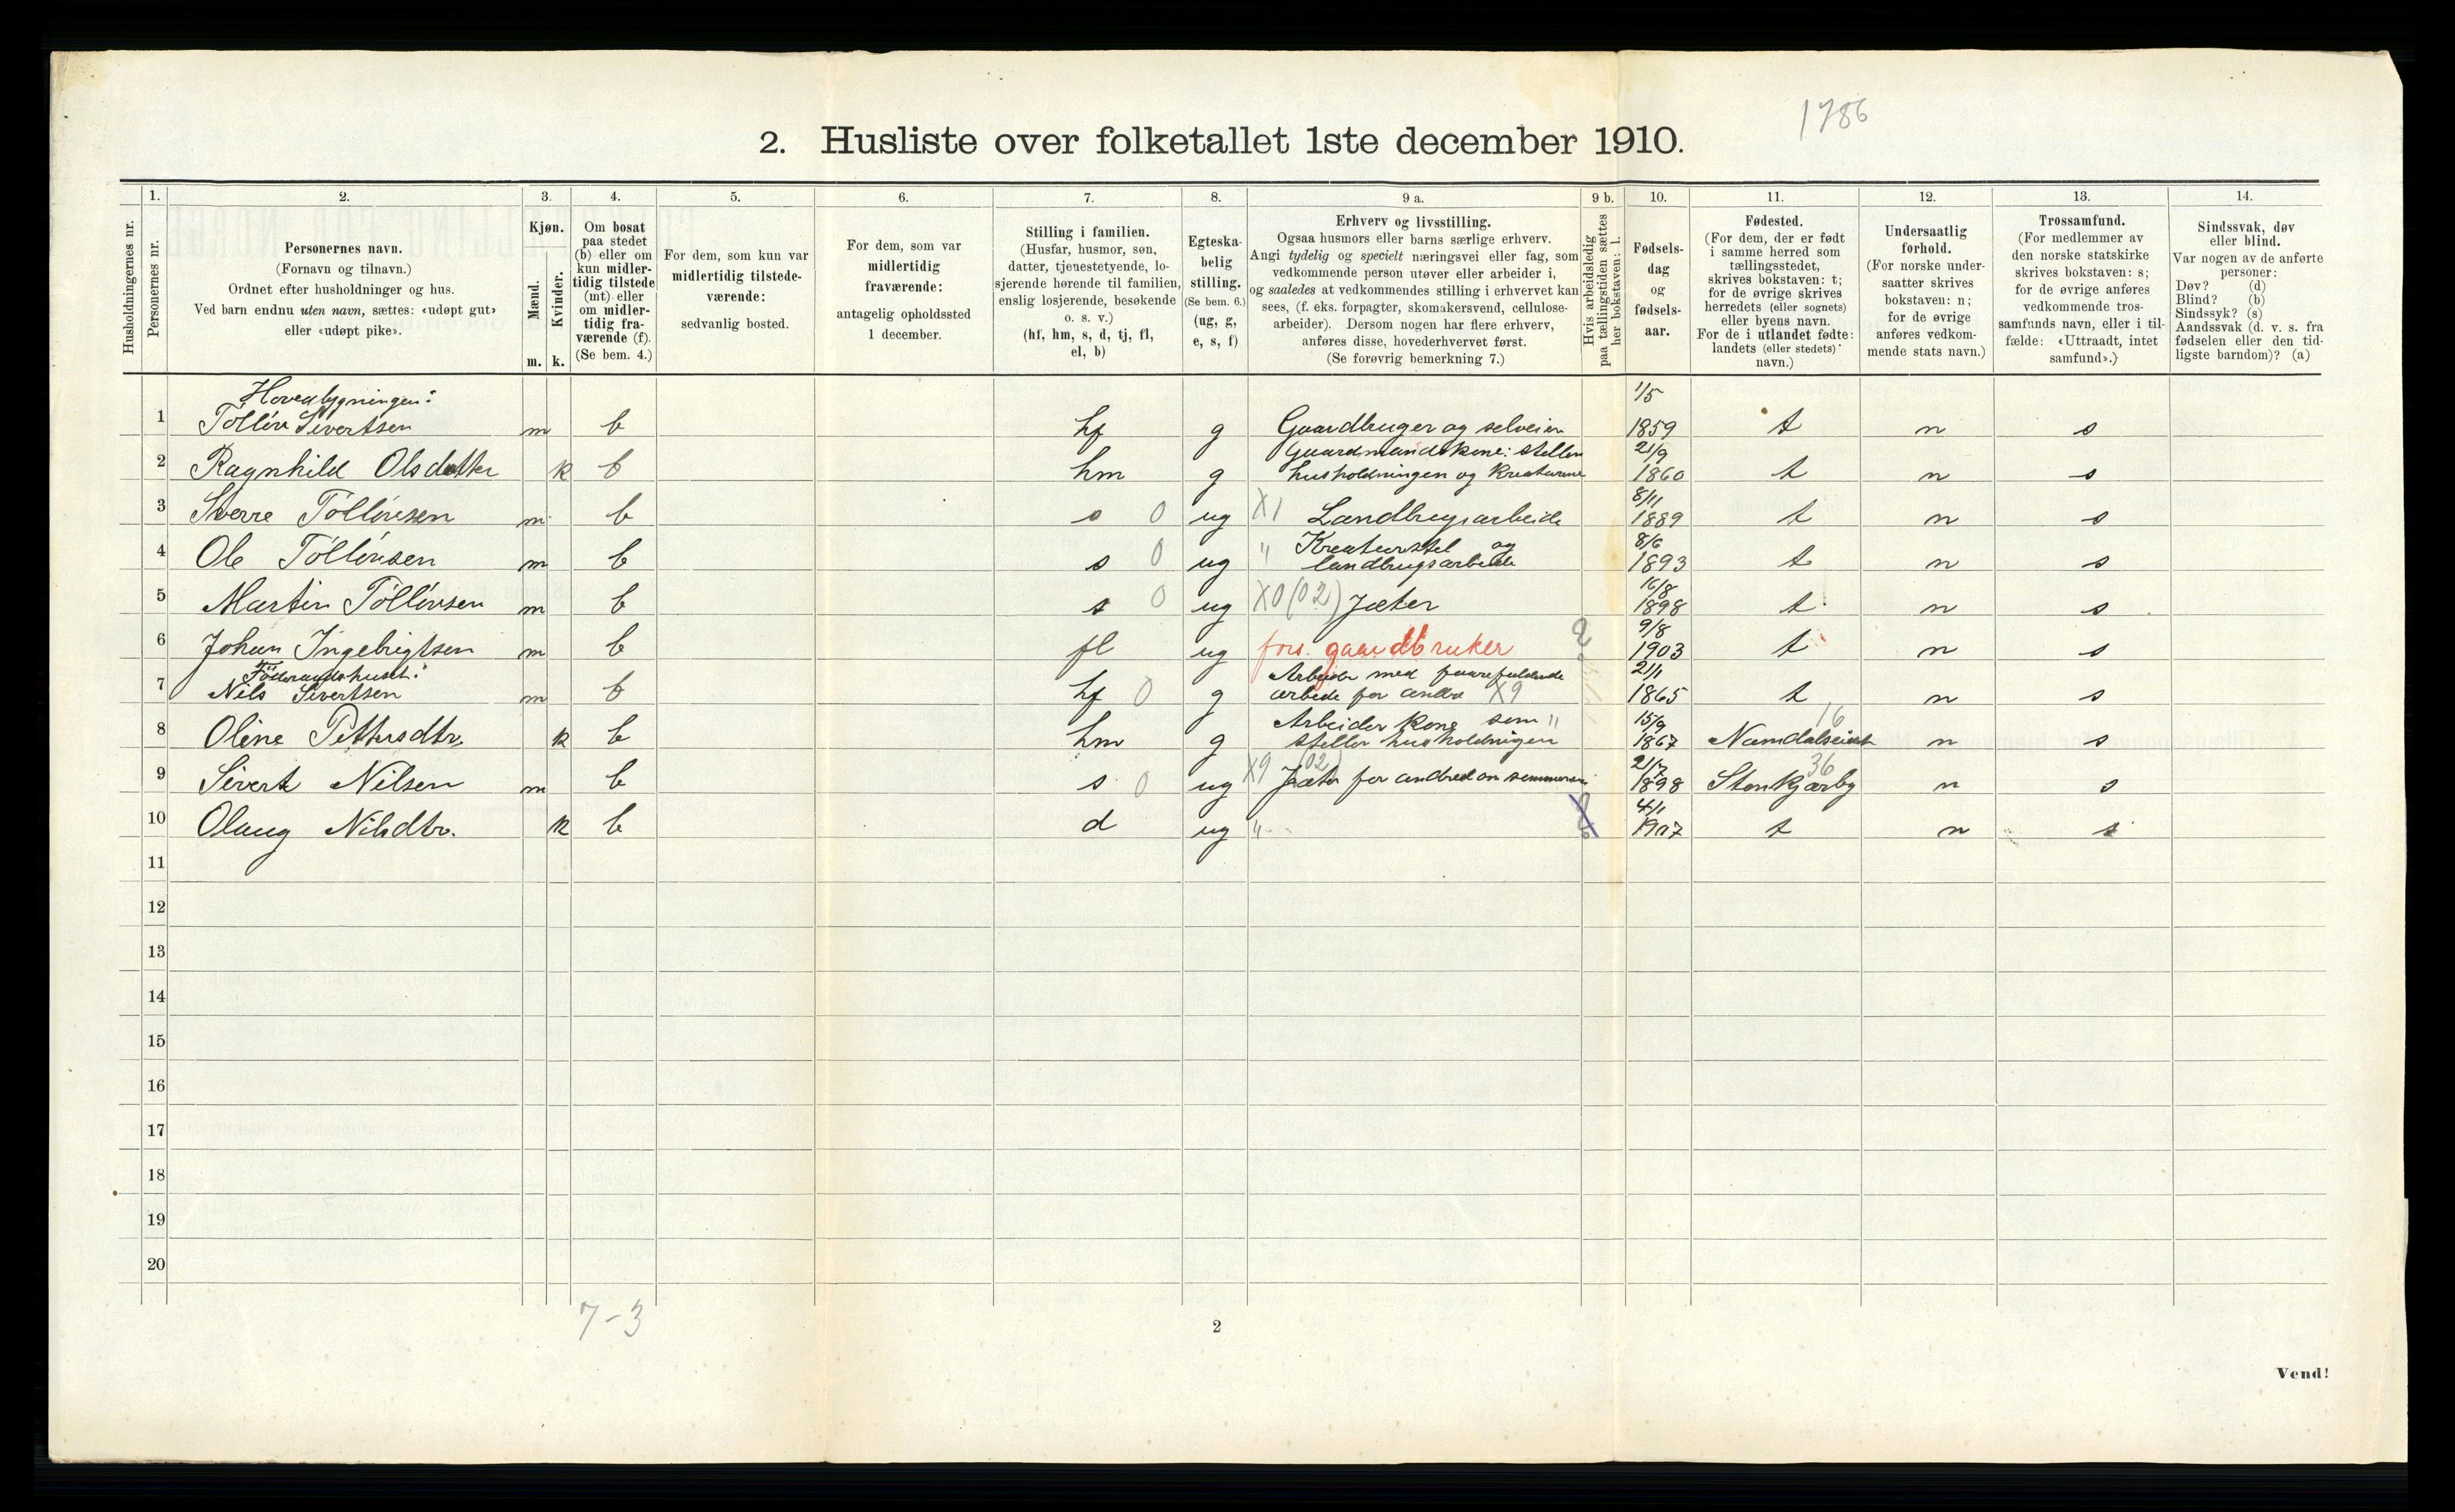 1786
2. Husliste over folketallet 1ste december 1910.
Husholdningernes nr.
1.
Personernes nr.
2.
Personernes navn.
(Fornavn og tilnavn.)
Ordnet efter husholdninger og hus.
Ved barn endnu uten navn, sættes: «udøpt gut»
eller «udøpt pike».
3.
Kjøn.
Mænd.
Kvinder.
m. k.
4.
Om bosat
paa stedet
(b) eller om
kun midler-
tidig tilstede
(mt) eller
om midler-
tidig fra-
værende (f).
(Se bem. 4.)
5.
For dem, som kun var
midlertidig tilstede-
værende:
sedvanlig bosted.
6.
For dem, som var
midlertidig
fraværende:
antagelig opholdssted
1 december.
7.
Stilling i familien.
(Husfar, husmor, søn,
datter, tjenestetyende, lo-
sjerende hørende til familien,
enslig losjerende, besøkende
o. s. v.)
(hf, hm, s, d, tj, fl,
el, b)
8.
Egteska-
belig
stilling.
(Se bem. 6.)
(ug, g,
e, s, f)
9 a.
Erhverv og livsstilling.
Ogsaa husmors eller barns særlige erhverv.
Angi tydelig og specielt næringsvei eller fag, som
vedkommende person utøver eller arbeider i,
og saaledes at vedkommendes stilling i erhvervet kan
sees, (f. eks. forpagter, skomakersvend, cellulose-
arbeider). Dersom nogen har flere erhverv,
anføres disse, hovederhvervet først.
(Se forøvrig bemerkning 7.)
9 b.
Hvis arbeidsledig
paa tællingstiden sættes
her bokstaven: l.
10.
Fødsels-
dag
og
fødsels-
aar.
11.
Fødested.
(For dem, der er født
i samme herred som
tællingsstedet,
skrives bokstaven: t;
for de øvrige skrives
herredets (eller sognets)
eller byens navn.
For de i utlandet fødte:
landets (eller stedets)
navn.)
12.
Undersaatlig
forhold.
(For norske under-
saatter skrives
bokstaven: n;
for de øvrige
anføres vedkom-
mende stats navn.)
13.
Trossamfund.
(For medlemmer av
den norske statskirke
skrives bokstaven: s;
for de øvrige anføres
vedkommende tros-
samfunds navn, eller i til-
fælde: «Uttraadt, intet
samfund».)
14.
Sindssvak, døv
eller blind.
Var nogen av de anførte
personer:
Døv? (d)
Blind? (b)
Sindssyk? (s)
Aandssvak (d. v. s. fra
fødselen eller den tid-
ligste barndom)? (a)
Hovedbygningen: 1/5
1 Tollëiv Sivertsen m b hf g Gaardbruger og selveier 1859 t n s
Gaardmandskone: steller 21/9
2 Ragnhild Olsdatter k b hm g husholdningen og Kreaturene 1860 t n s
8/11
3 Sverre Tollevsen m b s 0 ug X1 Landbrugsarbeide 1889 t n s
Kreaturstel og 8/6
4 Ole Tollevsen m b s 0 ug " landbrugsarbeide 1893 t n s
16/8
5 Martin Tollevsen m b s 0 ug X0 (02) Jæter 1898 t n s
9/8
6 Johan Ingebrigtsen m b fl ug fors. gaardbruker 2 1903 t n s
Föderaadshuset: Arbeider med 21/1
7 Nils Sivertsen m b hf 0 g arbeide for andre X9 1865 t n s
Arbeider kone som " 15/9 16
8 Oline Pettersdtr. k b hm g steller husholdnigen 1867 Namdalseidet n s
(02) 21/7 36
9 Sivert Nilsen m b s 0 ug X9 Jæter for andre om sommeren 1898 Stenkjærby n s
4/1
10 Olaug Nilsdtr. k b d ug " 1907 t n s
11
12
13
14
15
16
17
18
19
20
7-3
2
Vend!